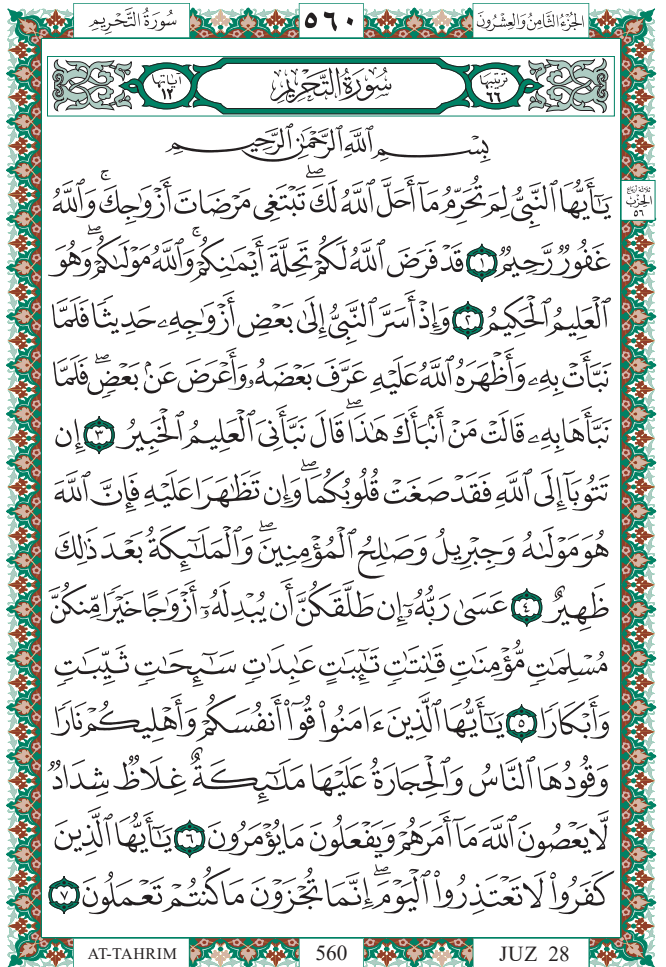 سُورَةُ التَّحْرِيمِ
٥٦٠
الجُزْءُ الثَّامِنُ وَالعِشْرُونَ
ترتيبها
٦٦
سُورَةُ التَّحْرِيمِ
آياتها
١٢
بِسْمِ ٱللَّهِ ٱلرَّحْمَٰنِ ٱلرَّحِيمِ
يَٰٓأَيُّهَا ٱلنَّبِيُّ لِمَ تُحَرِّمُ مَآ أَحَلَّ ٱللَّهُ لَكَۖ تَبْتَغِى مَرْضَاتَ أَزْوَٰجِكَۚ وَٱللَّهُ
ثلاثة أرباع
الحِزْب
٥٦
غَفُورٌ رَّحِيمٌ ١ قَدْ فَرَضَ ٱللَّهُ لَكُمْ تَحِلَّةَ أَيْمَٰنِكُمْۚ وَٱللَّهُ مَوْلَىٰكُمْۖ وَهُوَ
ٱلْعَلِيمُ ٱلْحَكِيمُ ٢ وَإِذْ أَسَرَّ ٱلنَّبِيُّ إِلَىٰ بَعْضِ أَزْوَٰجِهِۦ حَدِيثًا فَلَمَّا
نَبَّأَتْ بِهِۦ وَأَظْهَرَهُ ٱللَّهُ عَلَيْهِ عَرَّفَ بَعْضَهُۥ وَأَعْرَضَ عَنۢ بَعْضٍۖ فَلَمَّا
نَبَّأَهَا بِهِۦ قَالَتْ مَنْ أَنۢبَأَكَ هَٰذَاۖ قَالَ نَبَّأَنِىَ ٱلْعَلِيمُ ٱلْخَبِيرُ ٣ إِن
تَتُوبَآ إِلَى ٱللَّهِ فَقَدْ صَغَتْ قُلُوبُكُمَاۖ وَإِن تَظَٰهَرَا عَلَيْهِ فَإِنَّ ٱللَّهَ
هُوَ مَوْلَىٰهُ وَجِبْرِيلُ وَصَٰلِحُ ٱلْمُؤْمِنِينَۖ وَٱلْمَلَٰٓئِكَةُ بَعْدَ ذَٰلِكَ
ظَهِيرٌ ٤ عَسَىٰ رَبُّهُۥٓ إِن طَلَّقَكُنَّ أَن يُبْدِلَهُۥٓ أَزْوَٰجًا خَيْرًا مِّنكُنَّ
مُسْلِمَٰتٍ مُّؤْمِنَٰتٍ قَٰنِتَٰتٍ تَٰٓئِبَٰتٍ عَٰبِدَٰتٍ سَٰٓئِحَٰتٍ ثَيِّبَٰتٍ
وَأَبْكَارًا ٥ يَٰٓأَيُّهَا ٱلَّذِينَ ءَامَنُوا۟ قُوٓا۟ أَنفُسَكُمْ وَأَهْلِيكُمْ نَارًا
وَقُودُهَا ٱلنَّاسُ وَٱلْحِجَارَةُ عَلَيْهَا مَلَٰٓئِكَةٌ غِلَاظٌ شِدَادٌ
لَّا يَعْصُونَ ٱللَّهَ مَآ أَمَرَهُمْ وَيَفْعَلُونَ مَا يُؤْمَرُونَ ٦ يَٰٓأَيُّهَا ٱلَّذِينَ
كَفَرُوا۟ لَا تَعْتَذِرُوا۟ ٱلْيَوْمَۖ إِنَّمَا تُجْزَوْنَ مَا كُنتُمْ تَعْمَلُونَ ٧
AT-TAHRIM
560
JUZ 28